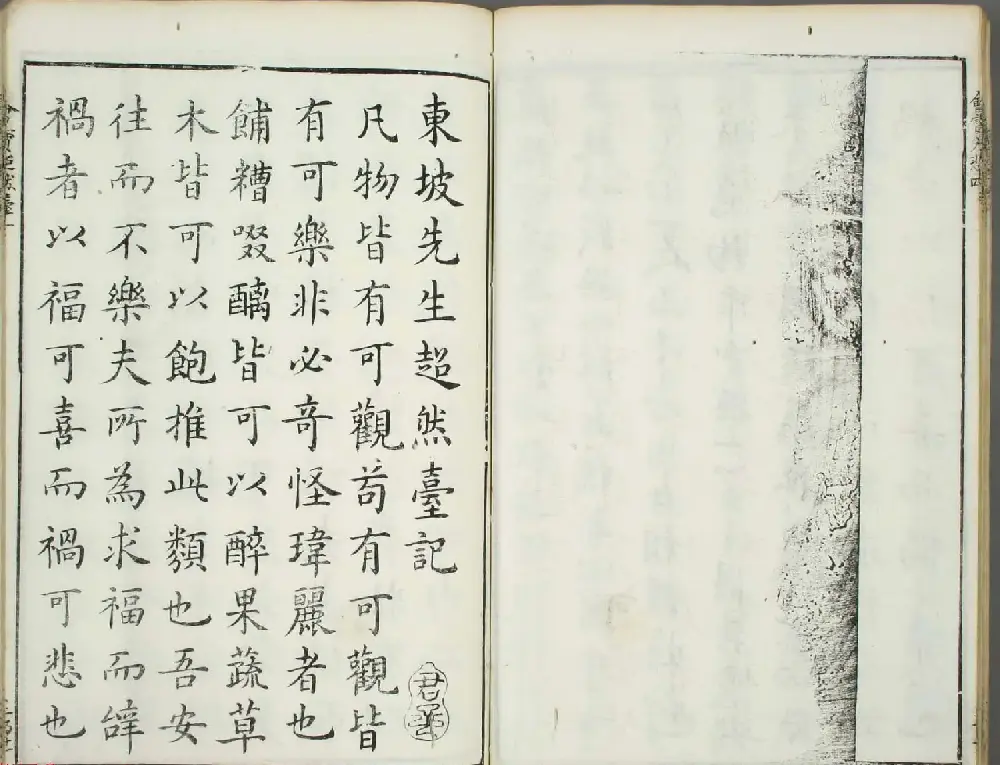 東坡先生超然臺記
凡物皆有可觀苟有可觀皆
有可樂非必奇怪瑋麗者也
餔糟啜醨皆可以醉果蔬草
木皆可以飽推此類也吾安
往而不樂夫所為求福而辝
禍者以福可喜而禍可悲也